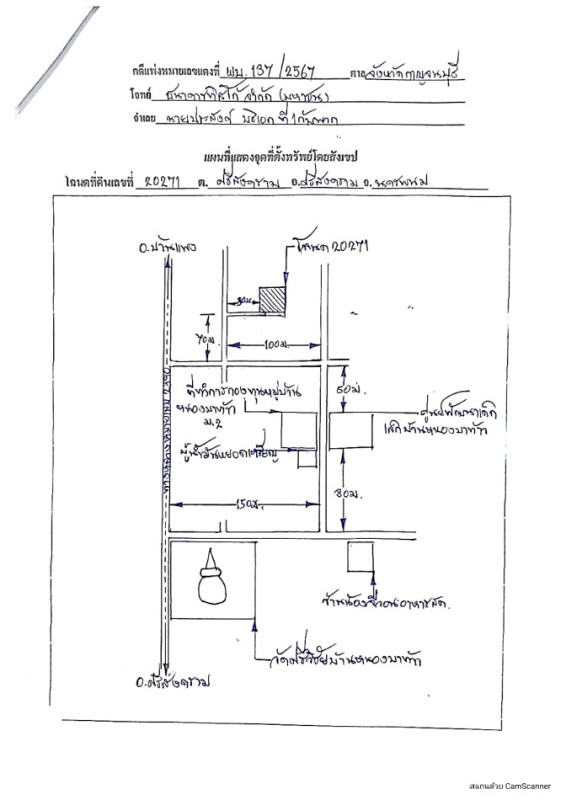 คดีแพ่งหมายเลขแดงที่ ผบ. 137 /2567 ศาลจังหวัดกาญจนบุรี
โจทก์ ธนาคารทิสโก้ จำกัด (มหาชน)
จำเลย นายประสงค์ ที่ 1 กับพวก
แผนที่แสดงจุดที่ตั้งทรัพย์โดยสังเขป
โฉนดที่ดินเลขที่ 20271 ต. ศรีสงคราม อ.ศรีสงคราม จ. นครพนม
อ.บ้านแพง
โฉนด 20271
30ม.
70ม.
100ม.
ที่ทำการกองทุนหมู่บ้าน
หนองบาท้าว
ม.2
50ม.
ศูนย์พัฒนาเด็ก
เล็กบ้านหนองบาท้าว
ตู้น้ำมันหยอดเหรียญ
150ม.
80ม.
ร้านน้อง อาหารสัตว์
วัดศรีวิชัยบ้านหนองบาท้าว
อ.ศรีสงคราม
สแกนด้วย CamScanner